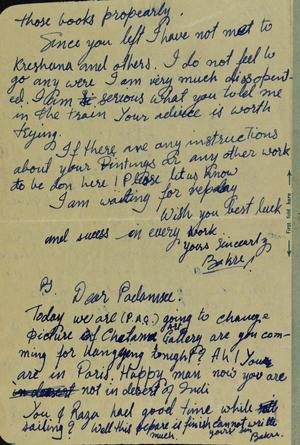 those books propearly.
Since you left I have not met to
Kreshana and others. I do not feel to
go any were I am very much dissopint-
ed. I am serious what you told me
in the train Your advice is worth
trying.
If there are any instructions
about your Pintings or any other work
to be don here! Please let us know
I am waiting for repaly
With you best luck
and sucess in every work
Yours Sincearly
Bakre,
Dear Padamsee.
Today we are (P.A.G.) going to change
picture of Chetana Art Gallery are you com-
ming for hanging tonight? Ah! Your
are in Paris. Happy man now you are
not in desert of Indi
You & Raza had good time while
sailing? Well this papare is finish cannot write
much. yours sin
Bakre.
First fold here